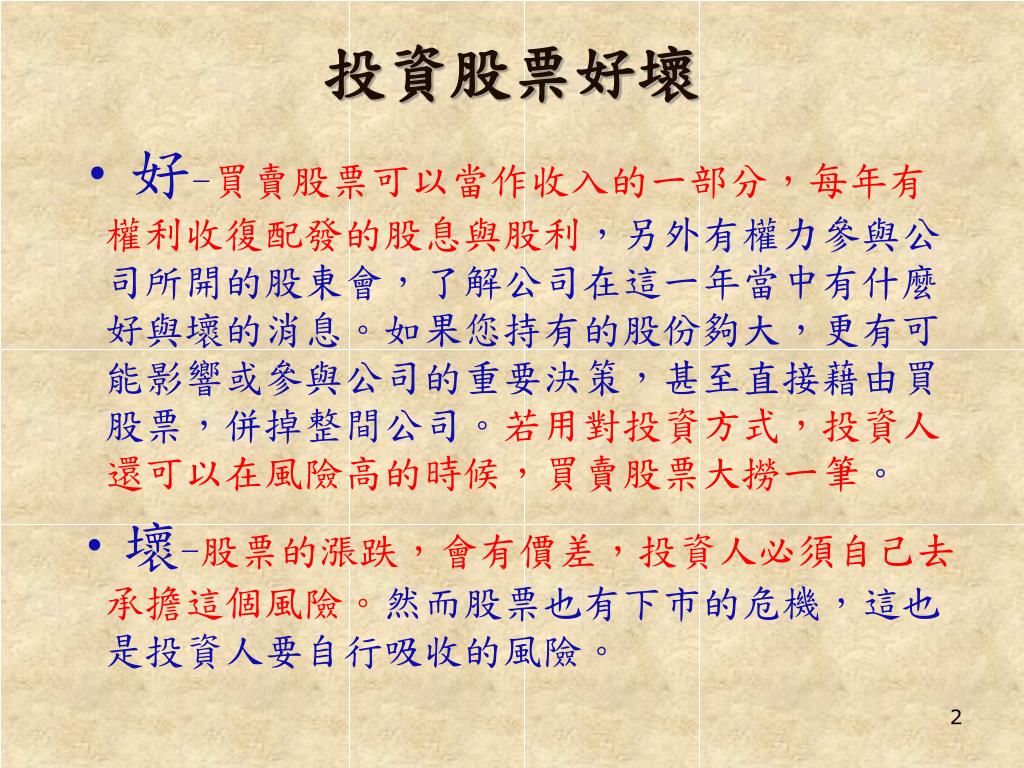 投資股票好壞
• 好-買賣股票可以當作收入的一部分，每年有
權利收復配發的股息與股利，另外有權力參與公
司所開的股東會，了解公司在這一年當中有什麼
好與壞的消息。如果您持有的股份夠大，更有可
能影響或參與公司的重要決策，甚至直接藉由買
股票，併掉整間公司。若用對投資方式，投資人
還可以在風險高的時候，買賣股票大撈一筆。
• 壞-股票的漲跌，會有價差，投資人必須自己去
承擔這個風險。然而股票也有下市的危機，這也
是投資人要自行吸收的風險。
2